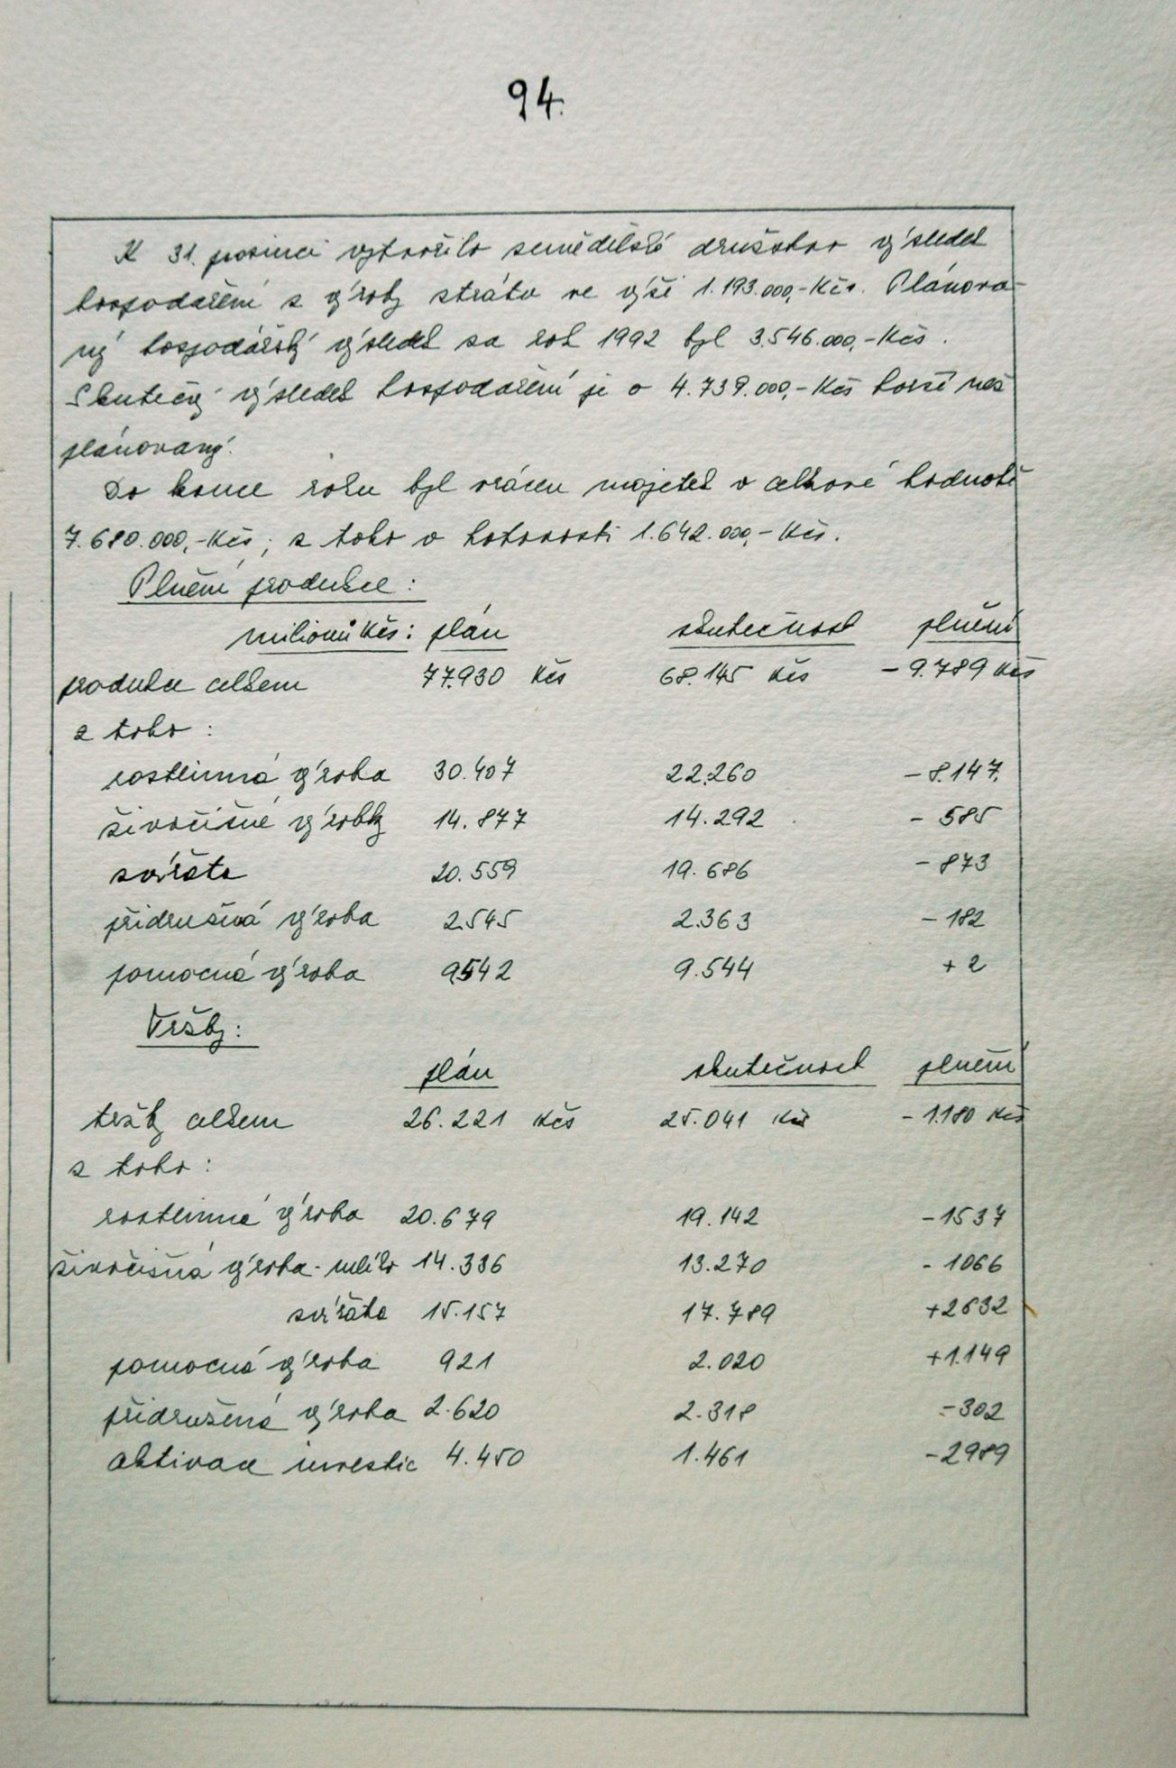 94.
K 31. prosinci vytvořilo zemědělské družstvo výsledek
hospodaření z výroby ztrátu ve výši 1.193.000,-Kčs. Plánova-
ný hospodářský výsledek za rok 1992 byl 3.546.000,-Kčs.
Skutečný výsledek hospodaření je o 4.739.000,-Kčs horší než
plánovaný.
Do konce roku byl vrácen majetek v celkové hodnotě
7.680.000,-Kčs, z toho v hotovosti 1.642.000,-Kčs.
Plnění produkce:
milionů Kčs: plán skutečnost plnění
produkce celkem 77.930 Kčs 68.145 Kčs -9.789 Kčs
z toho:
rostlinná výroba 30.407 22.260 -8.147.
živočišné výrobky 14.877 14.292 -585
zvířata 20.559 19.686 -873
přidružená výroba 2.545 2.363 -182
pomocná výroba 9.542 9.544 +2
Tržby:
plán skutečnost plnění
tržby celkem 26.221 Kčs 25.041 Kčs -1.180 Kčs
z toho:
rostlinná výroba 20.679 19.142 -1537
živočišná výroba - mléko 14.336 13.270 -1066
zvířata 15.157 17.789 +2632
pomocná výroba 921 2.020 +1.149
přidružená výroba 2.620 2.318 -302
aktivace investic 4.450 1.461 -2989